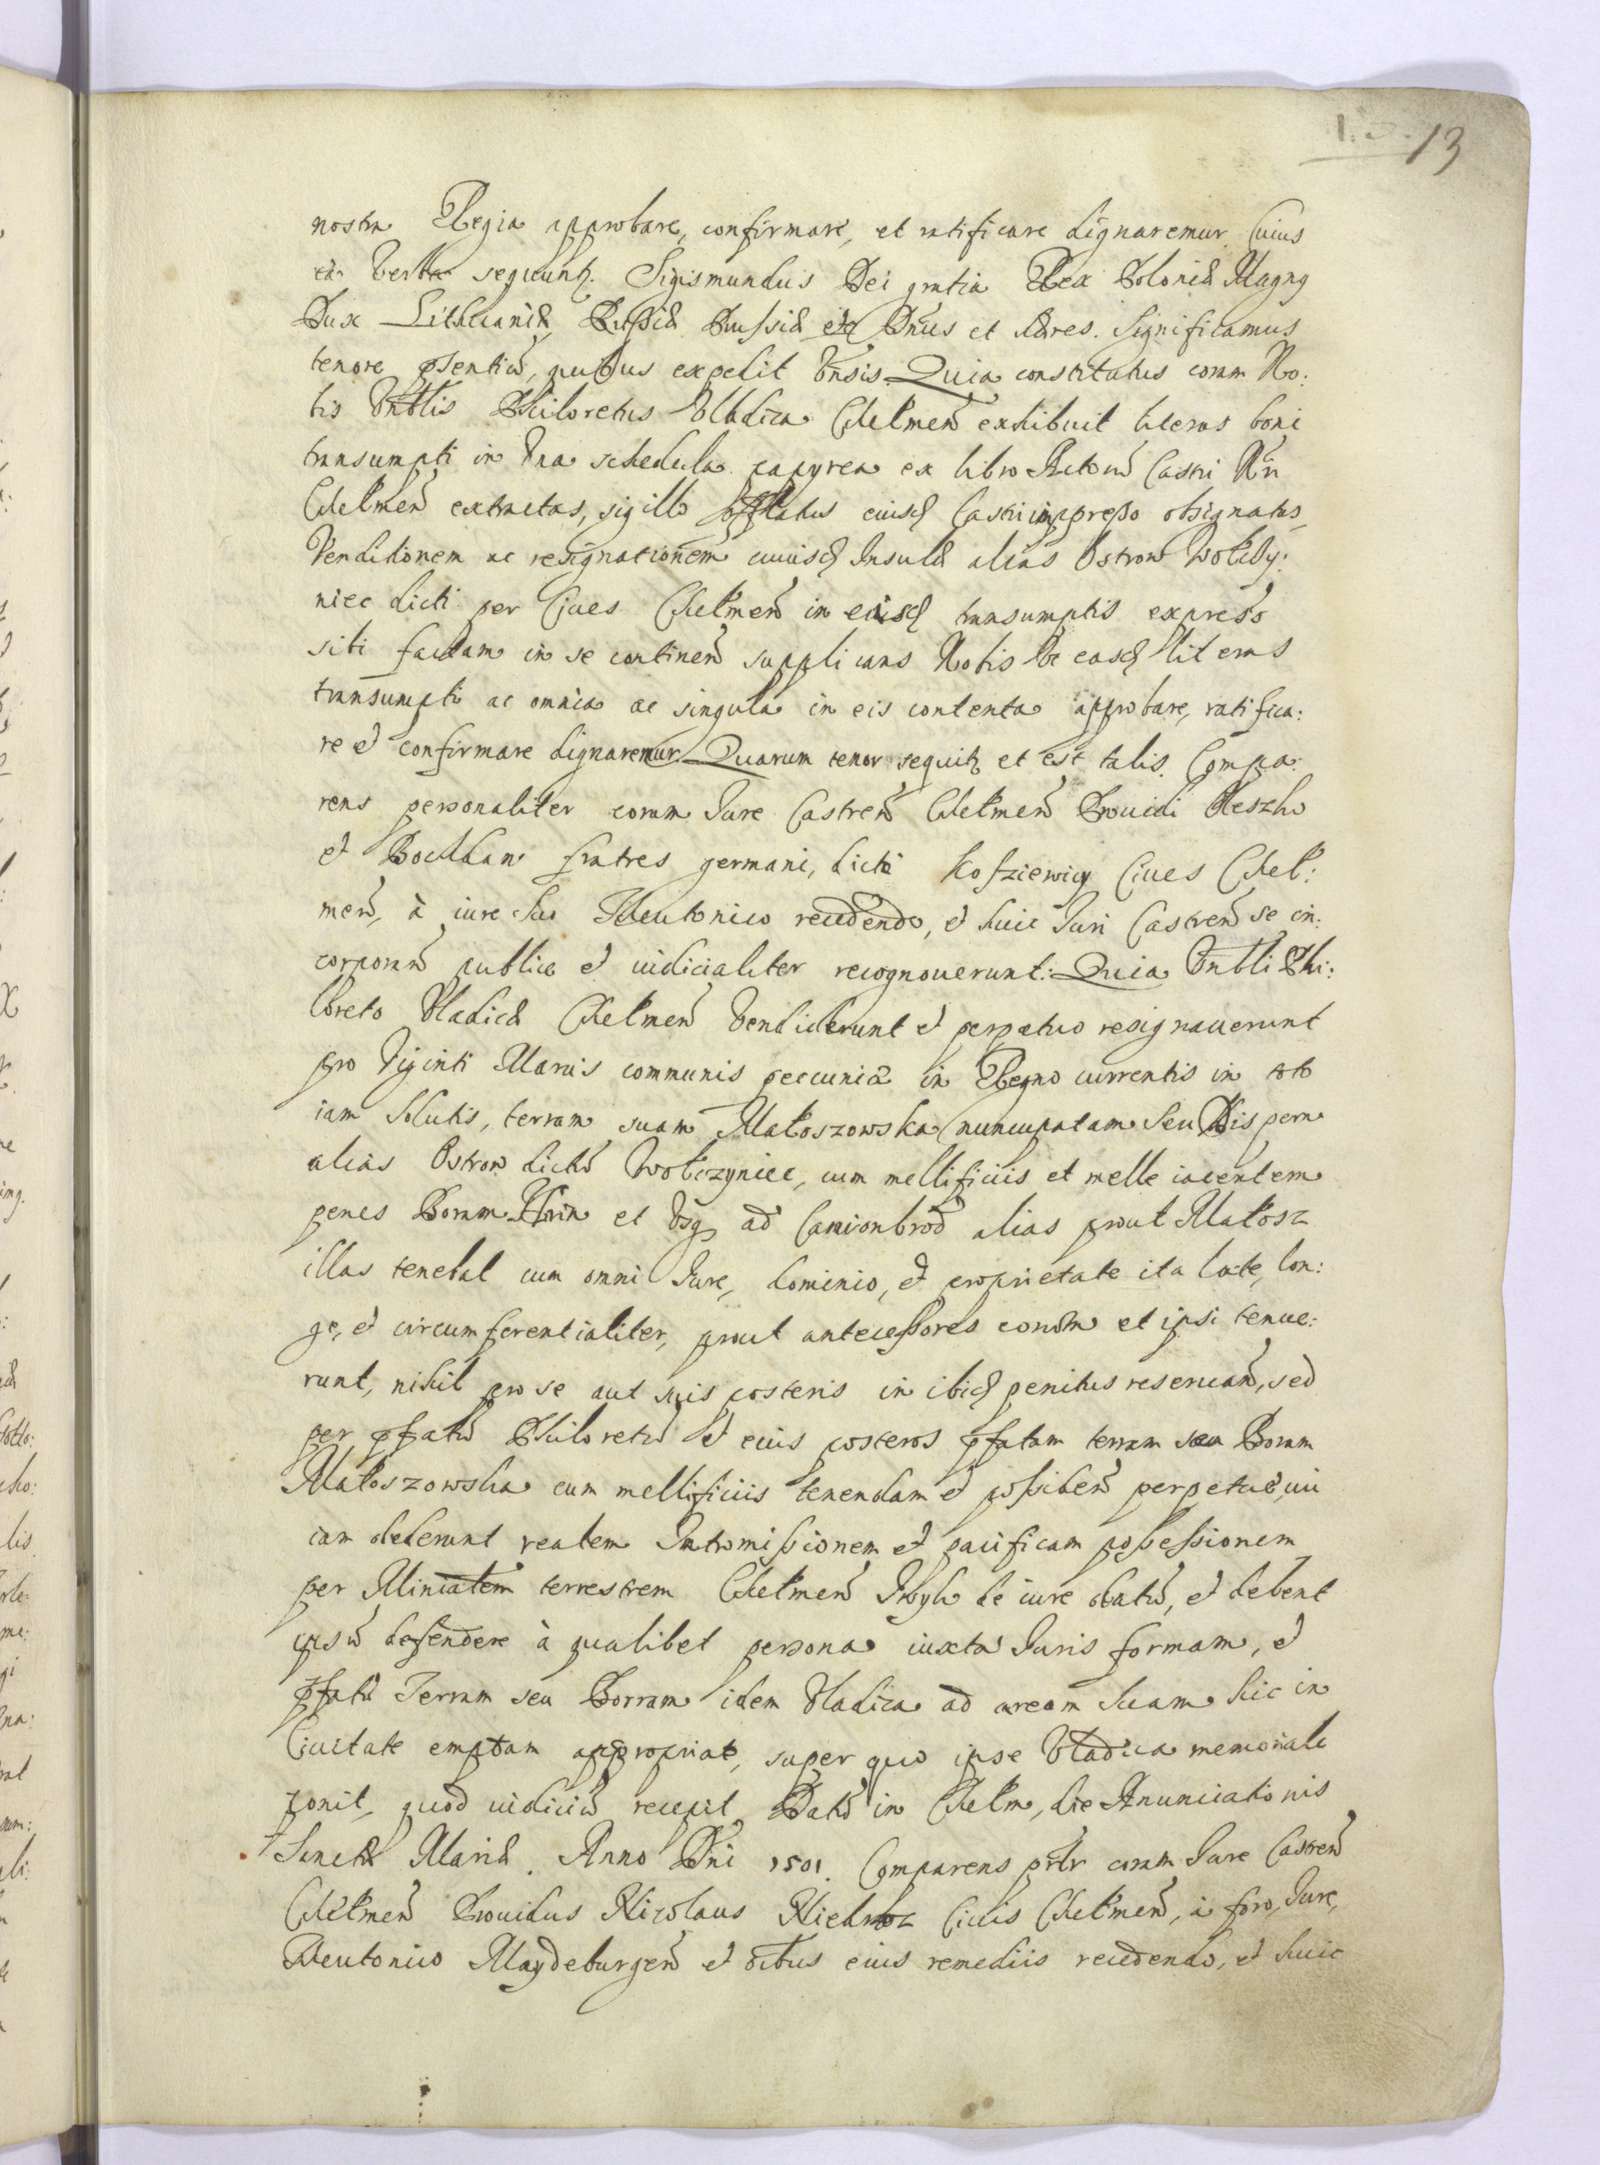 13
nostra Regia approbare, confirmare, et ratificare dignaremur. Cuius
ea verba sequunt. Sigismundus Dei gratia Rex Poloniæ Magnus
Dux Lithuaniæ, Russiæ Prussiæ etc Dnus et Hæres. Significamus
tenore psentiũ, quibus expedit vnsis. Quia constitutus coram No:
bis Vnblis Philoretus Vladica Chełmeñ exhibuit literas boni
transumpti in vna schedula papyrea ex libro Actorũ Castri Nri
Chełmeñ extractas, sigillo Castri impresso obsignatas,
Venditionem ac resignationem Insulæ alias Ostrow Wołczy:
niec dicti per Ciues Chełmeñ in transumptis expresso
siti factam in se contineñ supplicans Nobis vt easd literas
transumpti ac omnia ac singula in eis contenta approbare, ratifica:
re et confirmare dignaremur. Quarum tenor sequit et est talis. Compa:
rens personaliter coram Iure Castreñ Chełmeñ Prouidi Steszko
et Bochdan fratres germani, dicti Kosziewicy Ciues Cheł:
meñ, à iure suo Theutonico recedendo, et huic Iuri Castreñ se in:
corporañ publice et iudicialiter recognouerunt: Quia Vnbli Phi:
loreto Vladicæ Chełmeñ vendiderunt et perpetuo resignauerunt
pro viginti Marcis communis peccuniæ in Regno currentis in toto
iam solutis, terram suam Małoszowska nuncupatam seu
alias Ostrow dictũ Wołczyniec, cum mellificiis et melle iacentem
penes Boram et vsq ad Camionbrod alias prout Małosz
illas tenebat cum omni Iure, dominio, et proprietate ita late, lon:
ge, et circumferentialiter, prout antecessores eorum et ipsi tenue:
runt, nihil pro se aut suis posteris in ibid penitus reseruañ, sed
per pfatũ Philoretũ et eius posteros pfatam terram seu Boram
Małoszowska cum mellificiis tenendam et possideñ perpetue, cui
iam dederunt realem Intromissionem et pacificam possessionem
per Minialem terrestrem Chełmeñ de iure datũ, et debent
ipsũ defendere à qualibet persona iuxta Iuris formam, et
pfatã Terram seu Borram idem Vladica ad aream suam hic in
Ciuitate emptam appropriat, super quo ipse Vladica memoriale
ponit, quod iudiciũ recepit. Datũ in Chełm, die Anunciationis
Sanctæ Mariæ. Anno Dni 1501. Comparens prlr coram Iure Castreñ
Chełmeñ Prouidus Nicolaus Ciuis Chełmeñ, à foro, Iure,
Theutonico Maydeburgeñ et oibus eius remediis recedendo, et huic